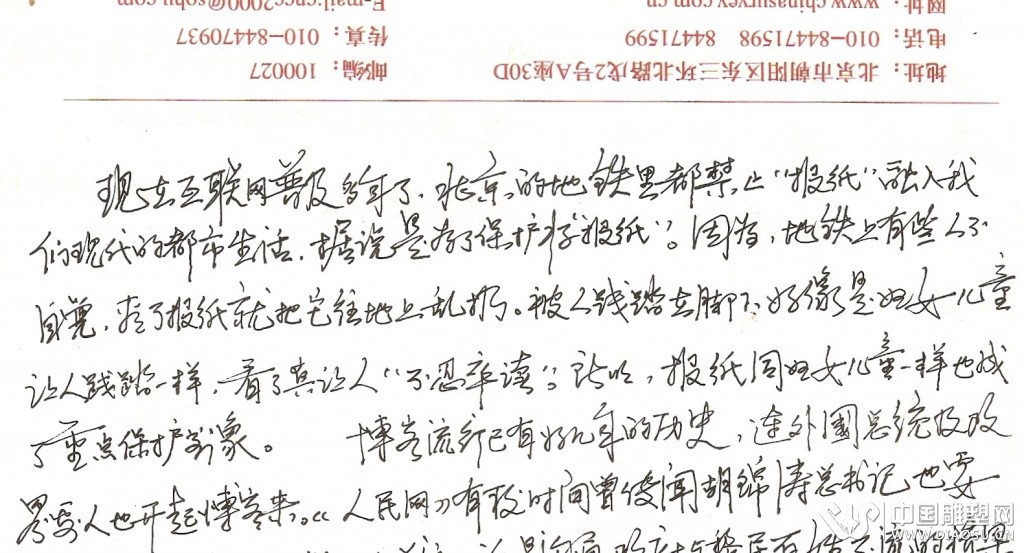 网址：www.chinasurvey.com.cn E-mail:cncc2000@sohu.com
电话：010-84471598 84471599 传真：010-84470937
地址：北京市朝阳区东三环北路戊2号A座30D 邮编：100027
现在互联网普及多年了，北京的地铁里都禁止“报纸”融入我
们现代的都市生活，据说是为了保护“报纸”。因为，地铁上有些人不
自觉，看了报纸就把它往地上乱扔。被人践踏在脚下，好像是妇女儿童
让人践踏一样，看了真让人“不忍卒读”。所以，报纸同妇女儿童一样也成
了重点保护对象。 博客流行已有好几年的历史，连外国总统及政
界要人也开起博客来。《人民网》有段时间曾传闻胡锦涛总书记也要
中国雕塑网
WWW.DIAOSU.CN